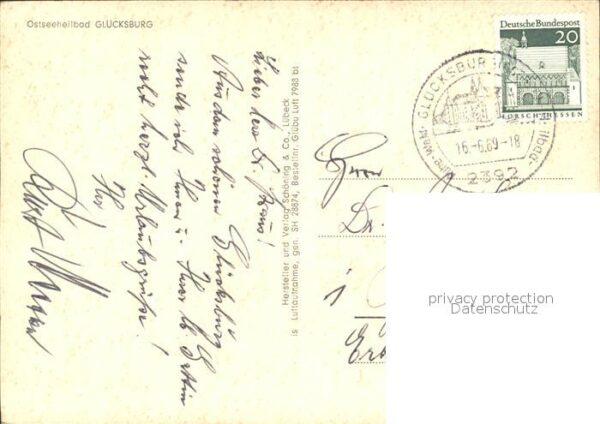 Ostseeheilbad GLÜCKSBURG
Lieber Herr Dr.
Aus dem schönen Glücksburg
sende ich Ihnen u. Ihrer lb. Gattin
recht herzl. Urlaubsgrüße!
Ihr
Hersteller und Verlag Schöning & Co., Lübeck
Luftaufnahme, gen. SH 28874, Bestellnr. Glübu Luft 7988 bi
Deutsche Bundespost
20
LORSCH·HESSEN
GLÜCKSBURG
16.-6.69-18
2392
Herrn
Dr.
i
privacy protection
Datenschutz